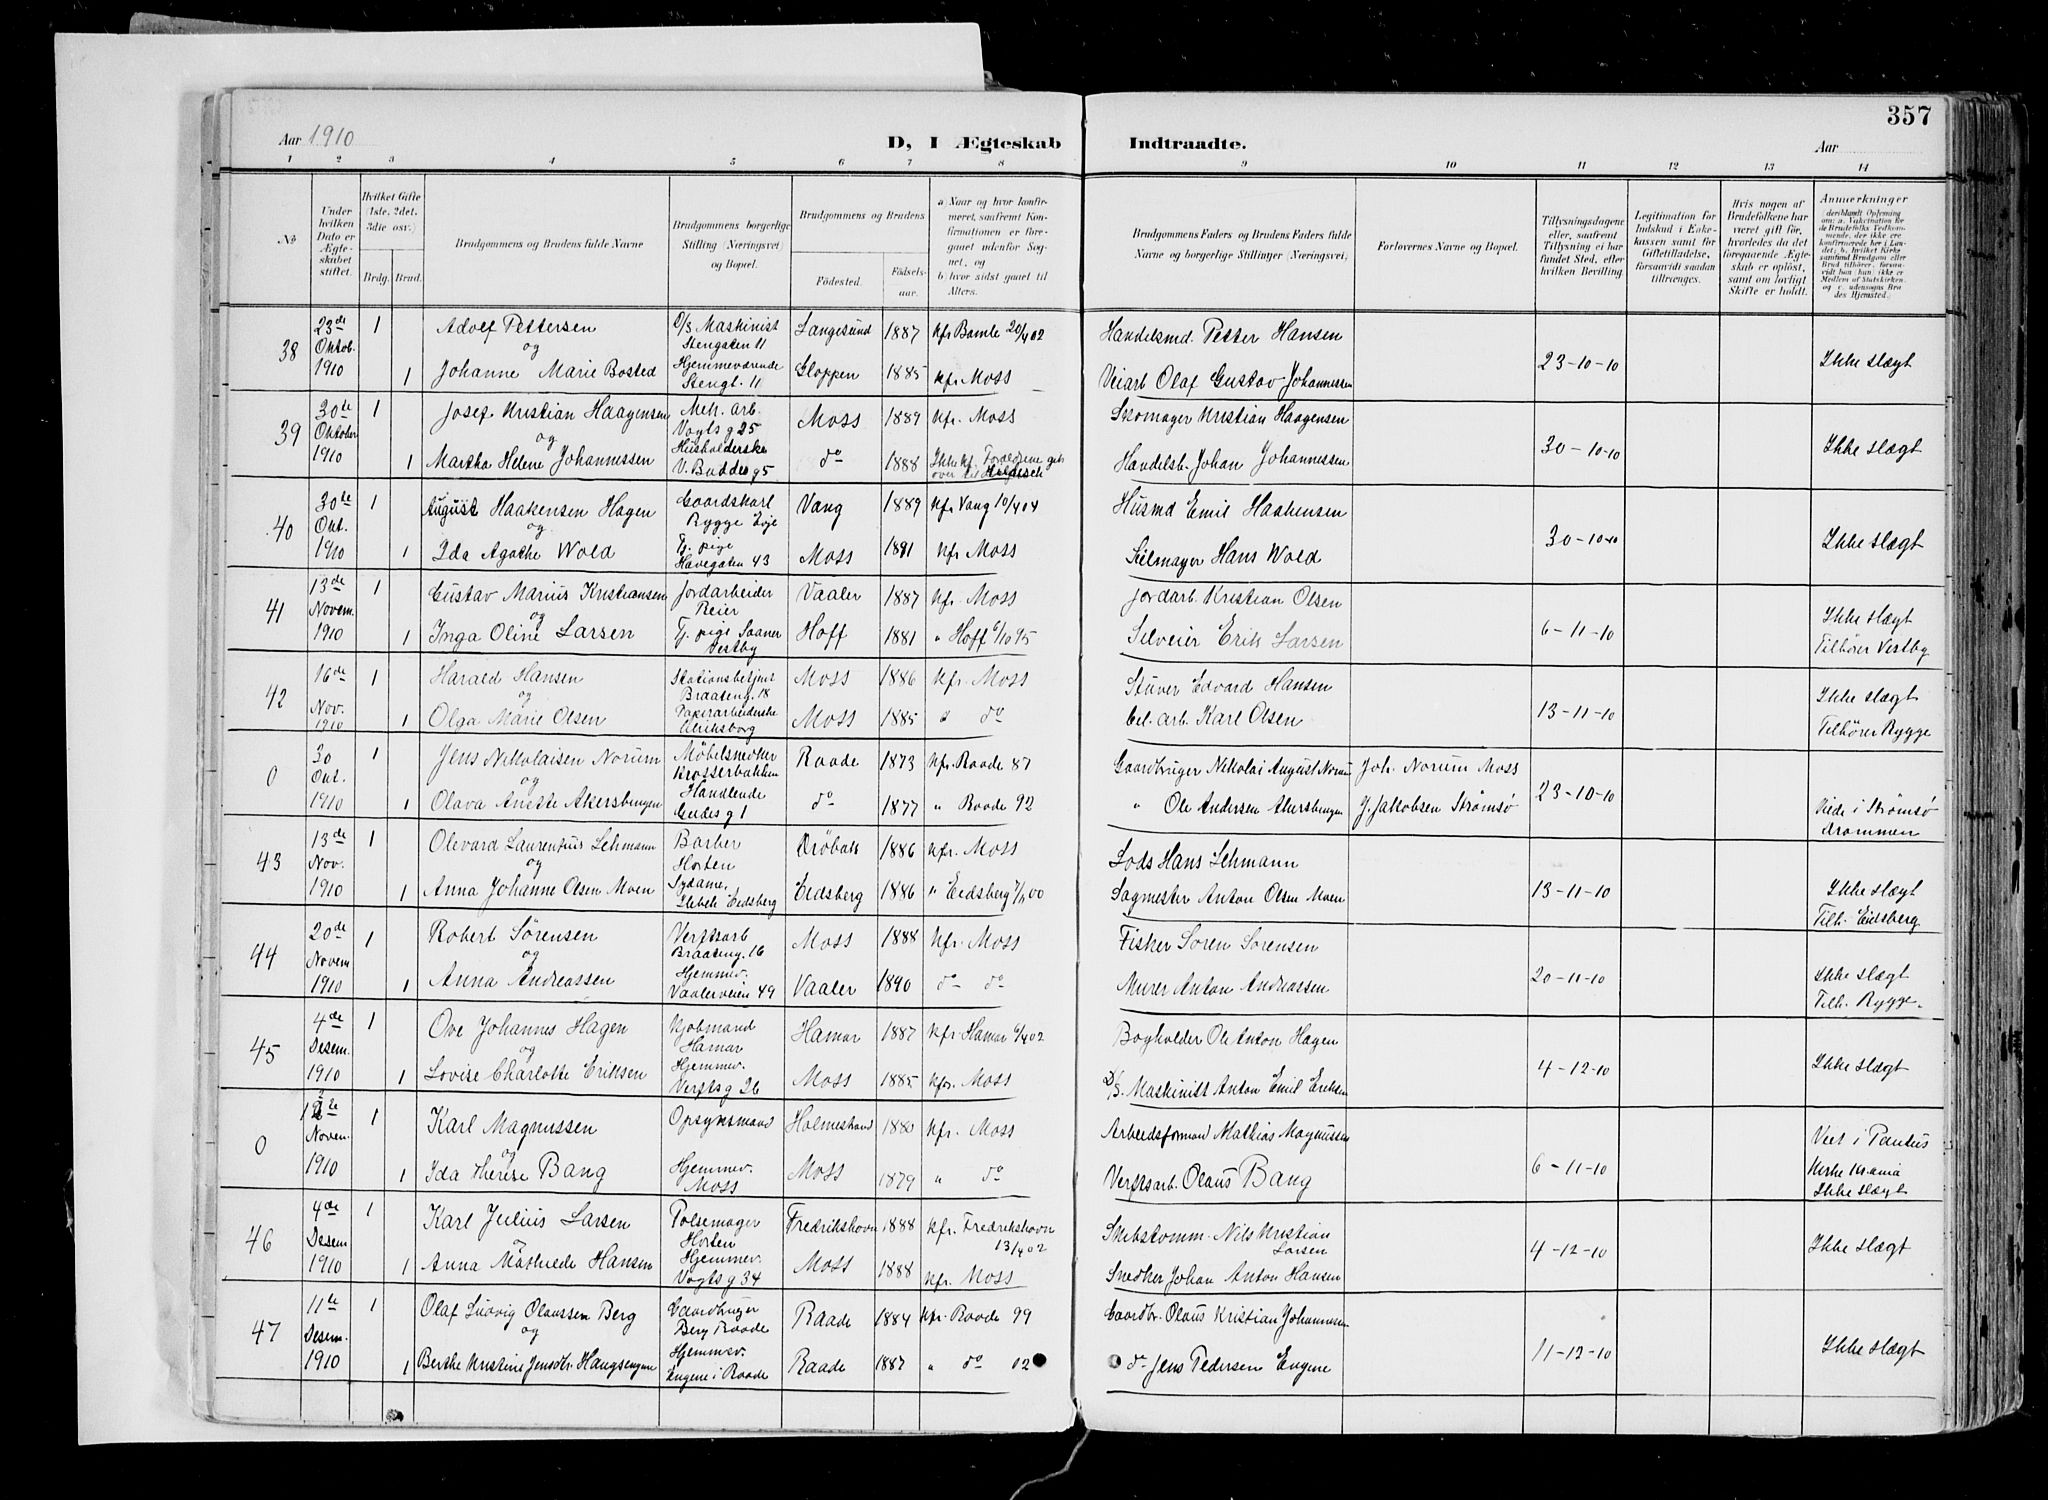 357
Aar 1910
D, I Ægteskab Indtraadte.
Aar
1 2 3 4 5 6 7 8 9 10 11 12 13 14
No
Under hvilken Dato er Ægteskabet stiftet.
Hvilket Gifte (1ste, 2det, 3die osv.)
Brdg. Brud.
Brudgommens og Brudens fulde Navne
Brudgommens borgerlige Stilling (Næringsvei) og Bopæl.
Brudgommens og Brudens
Fødested. Fødselsaar.
a) Naar og hvor konfirmeret, saafremt Konfirmationen er foregaaet udenfor Sognet, og
b) hvor sidst gaaet til Alters.
Brudgommens Faders og Brudens Faders fulde Navne og borgerlige Stillinger (Næringsvei)
Forlovernes Navne og Bopæl.
Tillysningsdagene eller, saafremt Tillysning ei har fundet Sted, efter hvilken Bevilling.
Legitimation for Indskud i Enkekassen samt for Giftetilladelse, forsaavidt saadan tiltrænges.
Hvis nogen af Brudefolkene har været gift før, hvorledes da det foregaaende Ægteskab er opløst, samt om lovligt Skifte er holdt.
Anmærkninger
38 23de Oktob. 1910 1 Adolf Pettersen D/S Maskinist Stengaten 11 Langesund 1887 Kfr Bamle 20/4 02 Handelsmd. Petter Hansen
og
1 Johanne Marie Bosted Hjemmeværende Stengt. 11 Gloppen 1885 Kfr Moss Veiarb Olaf Gustav Johannessen 23-10-10 Ikke slægt
39 30te Oktober 1910 1 Josef Kristian Haagensen Mek. arb. Vogts g 25 Moss 1889 Kfr. Moss Skomager Kristian Haagensen
og
1 Martha Helene Johannessen Husholderske V. Buddes g 5 do 1888 Ikke kf. Forældrene over til Handelsb. Johan Johannessen 30-10-10 Ikke slægt
40 30te Okt. 1910 1 August Haakensen Hagen Gaardskarl Rygge Evje Vang 1889 Kfr Vang 10/4 04 Husmd Emil Haakensen
og
1 Ida Agathe Wold Tj. pige Havegaten 43 Moss 1891 Kfr Moss Seilmager Hans Wold 30-10-10 Ikke slægt
41 13de Novem. 1910 1 Gustav Marius Kristiansen Jordarbeider Reier Vaaler 1887 Kfr. Moss Jordarb. Kristian Olsen
og
1 Inga Oline Larsen Tj. pige Saaner Vestby Hoff 1881 " Hoff 6/10 95 Selveier Erik Larsen 6-11-10 Ikke slægt Tilhører Vestby
42 16de Nov. 1910 1 Harald Hansen Stationsbetjent Braateng. 18 Moss 1886 Kfr. Moss Stuver Edvard Hansen
og
1 Olga Marie Olsen Papirarbeiderske Ulriksborg Moss 1885 " do Cel. arb. Karl Olsen 13-11-10 Ikke slægt Tilhører Rygge
0 30 Okt. 1910 1 Jens Nikolaisen Norum Møbelsnedker Krosserbakken Raade 1873 Kfr. Raade 87 Gaardbruger Nikolai August Norum Joh. Norum Moss
og
1 Olava Anette Akersbengen Handlende Gudes g 1 do 1877 " Raade 92 " Ole Andersen Akersbengen J. Jakobsen Strømsø 23-10-10 Viede i Strømsø Drammen
43 13de Nov. 1910 1 Olevard Laurentius Lehmann Barber Horten Drøbak 1886 Kfr. Moss Lods Hans Lehmann
og
1 Anna Johanne Olsen Moen Sydame, Eidsberg Eidsberg 1886 " Eidsberg 00 Sagmester Anton Olsen Moen 13-11-10 Ikke slægt Tilh. Eidsberg
44 20de Novem 1910 1 Robert Sørensen Verftsarb Braateng. 16 Moss 1888 Kfr. Moss Fisker Soren Sorensen
og
1 Anna Andreassen Hjemmev. Vaalerveien 49 Vaaler 1890 do do Murer Anton Andreassen 20-11-10 Ikke slægt Tilh. Rygge.
45 4de Desem. 1910 1 Ove Johannes Hagen Kjobmand Hamar Hamar 1887 Kfr. Hamar 6/4 02 Bogholder Ole Anton Hagen
og
1 Lovise Charlotte Eriksen Hjemmev. Verfts g 26 Moss 1885 Kfr. Moss D/S. Maskinist Anton Emil Eriksen 4-12-10 Ikke slægt
0 12te Novem. 1910 1 Karl Magnussen Opsynsmand Holmestrand 1880 Kfr. Moss Arbeidsformand Mathias Magnussen
og
1 Ida Therese Bang Hjemmev. Moss Moss 1879 " do Verftsarb. Olaus Bang 6-11-10 Viet i Paulus Kirke Kr.ania Ikke slægt
46 4de Desem 1910 1 Karl Julius Larsen Polsemager Horten Fredrikshavn 1888 Kfr. Fredrikshavn 13/4 02 Skibstomm. Nils Kristian Larsen
1 Anna Mathilde Hansen Hjemmev. Vogts g 34 Moss 1888 Kfr. Moss Snedker Johan Anton Hansen 4-12-10 Ikke slægt
47 11te Desem. 1910 1 Olaf Ludvig Olaussen Berg Gaardbruger Berg Raade Raade 1884 Kfr. Raade 99 Gaardbr. Olaus Kristian Johannesen
og
1 Berthe Kristine Jensdtr. Haugsengene Hjemmev. Engene i Raade Raade 1887 " do 02 do Jens Pedersen Engene 11-12-10 Ikke slægt